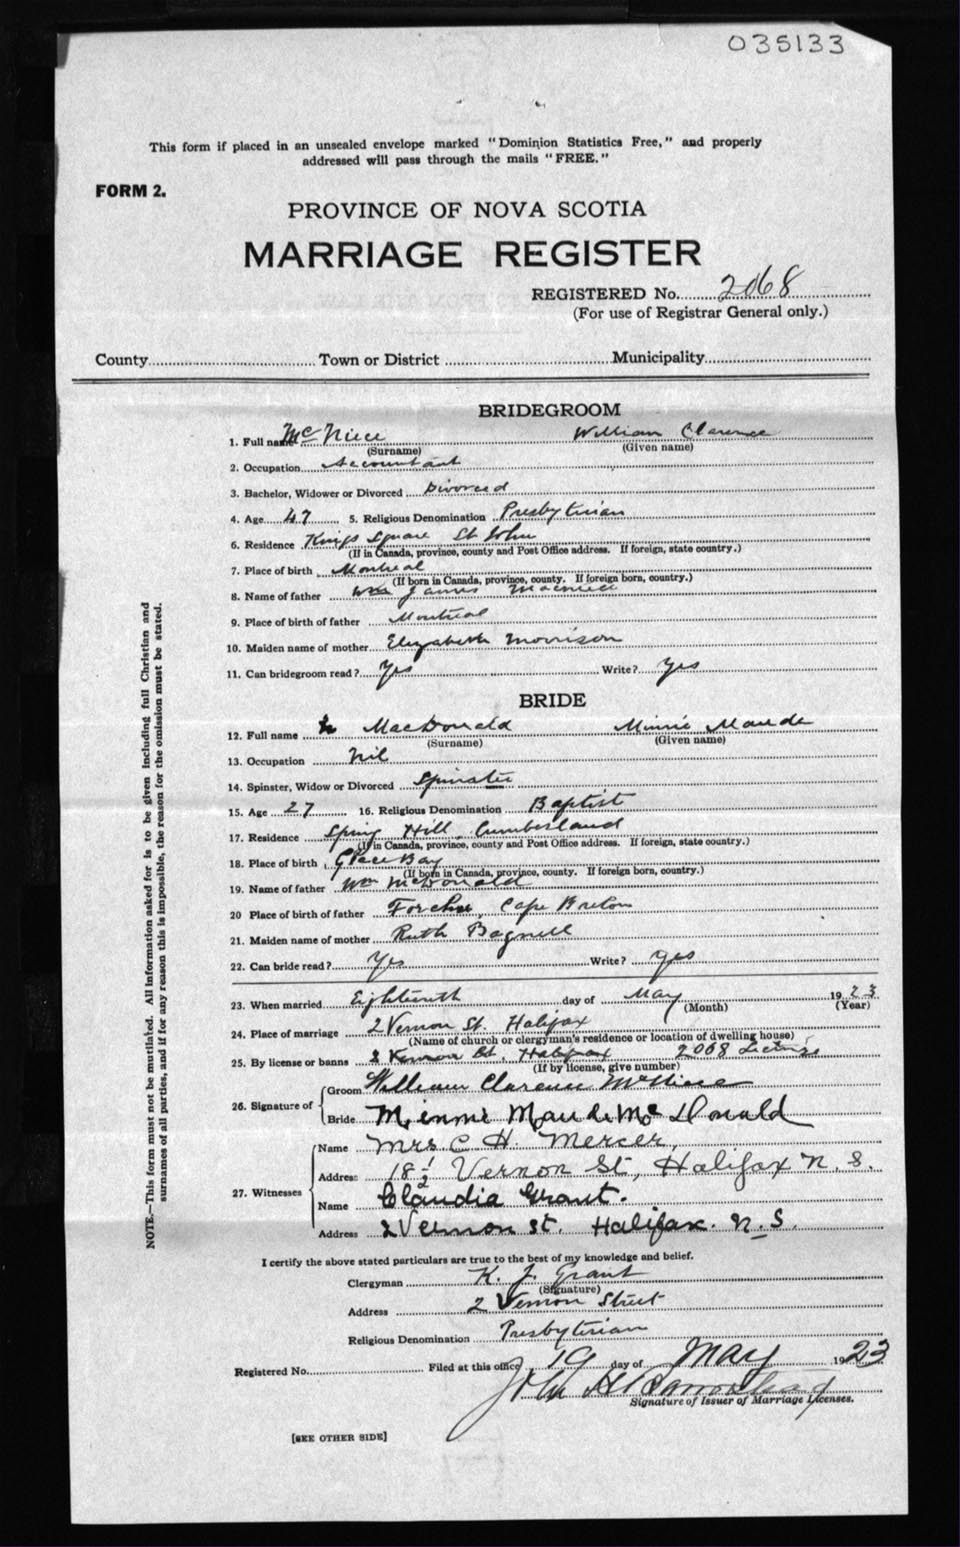 035133
This form if placed in an unsealed envelope marked "Dominion Statistics Free," and properly
addressed will pass through the mails "FREE."
FORM 2.
PROVINCE OF NOVA SCOTIA
MARRIAGE REGISTER
REGISTERED No. 2068
(For use of Registrar General only.)
County Town or District Municipality
BRIDEGROOM
1. Full name McNiece William Clarence
(Surname) (Given name)
2. Occupation Accountant
3. Bachelor, Widower or Divorced Divorced
4. Age 47 5. Religious Denomination Presbyterian
6. Residence Kings Square St John
(If in Canada, province, county and Post Office address. If foreign, state country.)
7. Place of birth Montreal
(If born in Canada, province, county. If foreign born, country.)
8. Name of father Wm James
9. Place of birth of father Montreal
10. Maiden name of mother Elizabeth Morrison
11. Can bridegroom read? Yes Write? Yes
BRIDE
12. Full name MacDonald Minnie Maude
(Surname) (Given name)
13. Occupation Nil
14. Spinster, Widow or Divorced Spinster
15. Age 27 16. Religious Denomination Baptist
17. Residence Spring Hill, Cumberland
(If in Canada, province, county and Post Office address. If foreign, state country.)
18. Place of birth Glace Bay
(If born in Canada, province, county. If foreign born, country.)
19. Name of father Wm McDonald
20 Place of birth of father Forchu, Cape Breton
21. Maiden name of mother Ruth Bagnell
22. Can bride read? Yes Write? Yes
23. When married Eighteenth day of May 1923
(Month) (Year)
24. Place of marriage 2 Vernon St. Halifax
(Name of church or clergyman's residence or location of dwelling house)
25. By license or banns 2 Vernon St, Halifax 2008
(If by license, give number)
26. Signature of Groom William Clarence McNiece
Bride Minnie Maude McDonald
27. Witnesses Name Mrs C H. Mercer,
Address 18½ Vernon St, Halifax N. S.
Name Claudia Grant.
Address 2 Vernon St. Halifax. N.S.
I certify the above stated particulars are true to the best of my knowledge and belief.
Clergyman K. J. Grant
(Signature)
Address 2 Vernon Street
Religious Denomination Presbyterian
Registered No. Filed at this office 19 day of May 1923
John
Signature of Issuer of Marriage Licenses.
[SEE OTHER SIDE]
NOTE.—This form must not be mutilated. All information asked for is to be given including full Christian and
surnames of all parties, and if for any reason this is impossible, the reason for the omission must be stated.